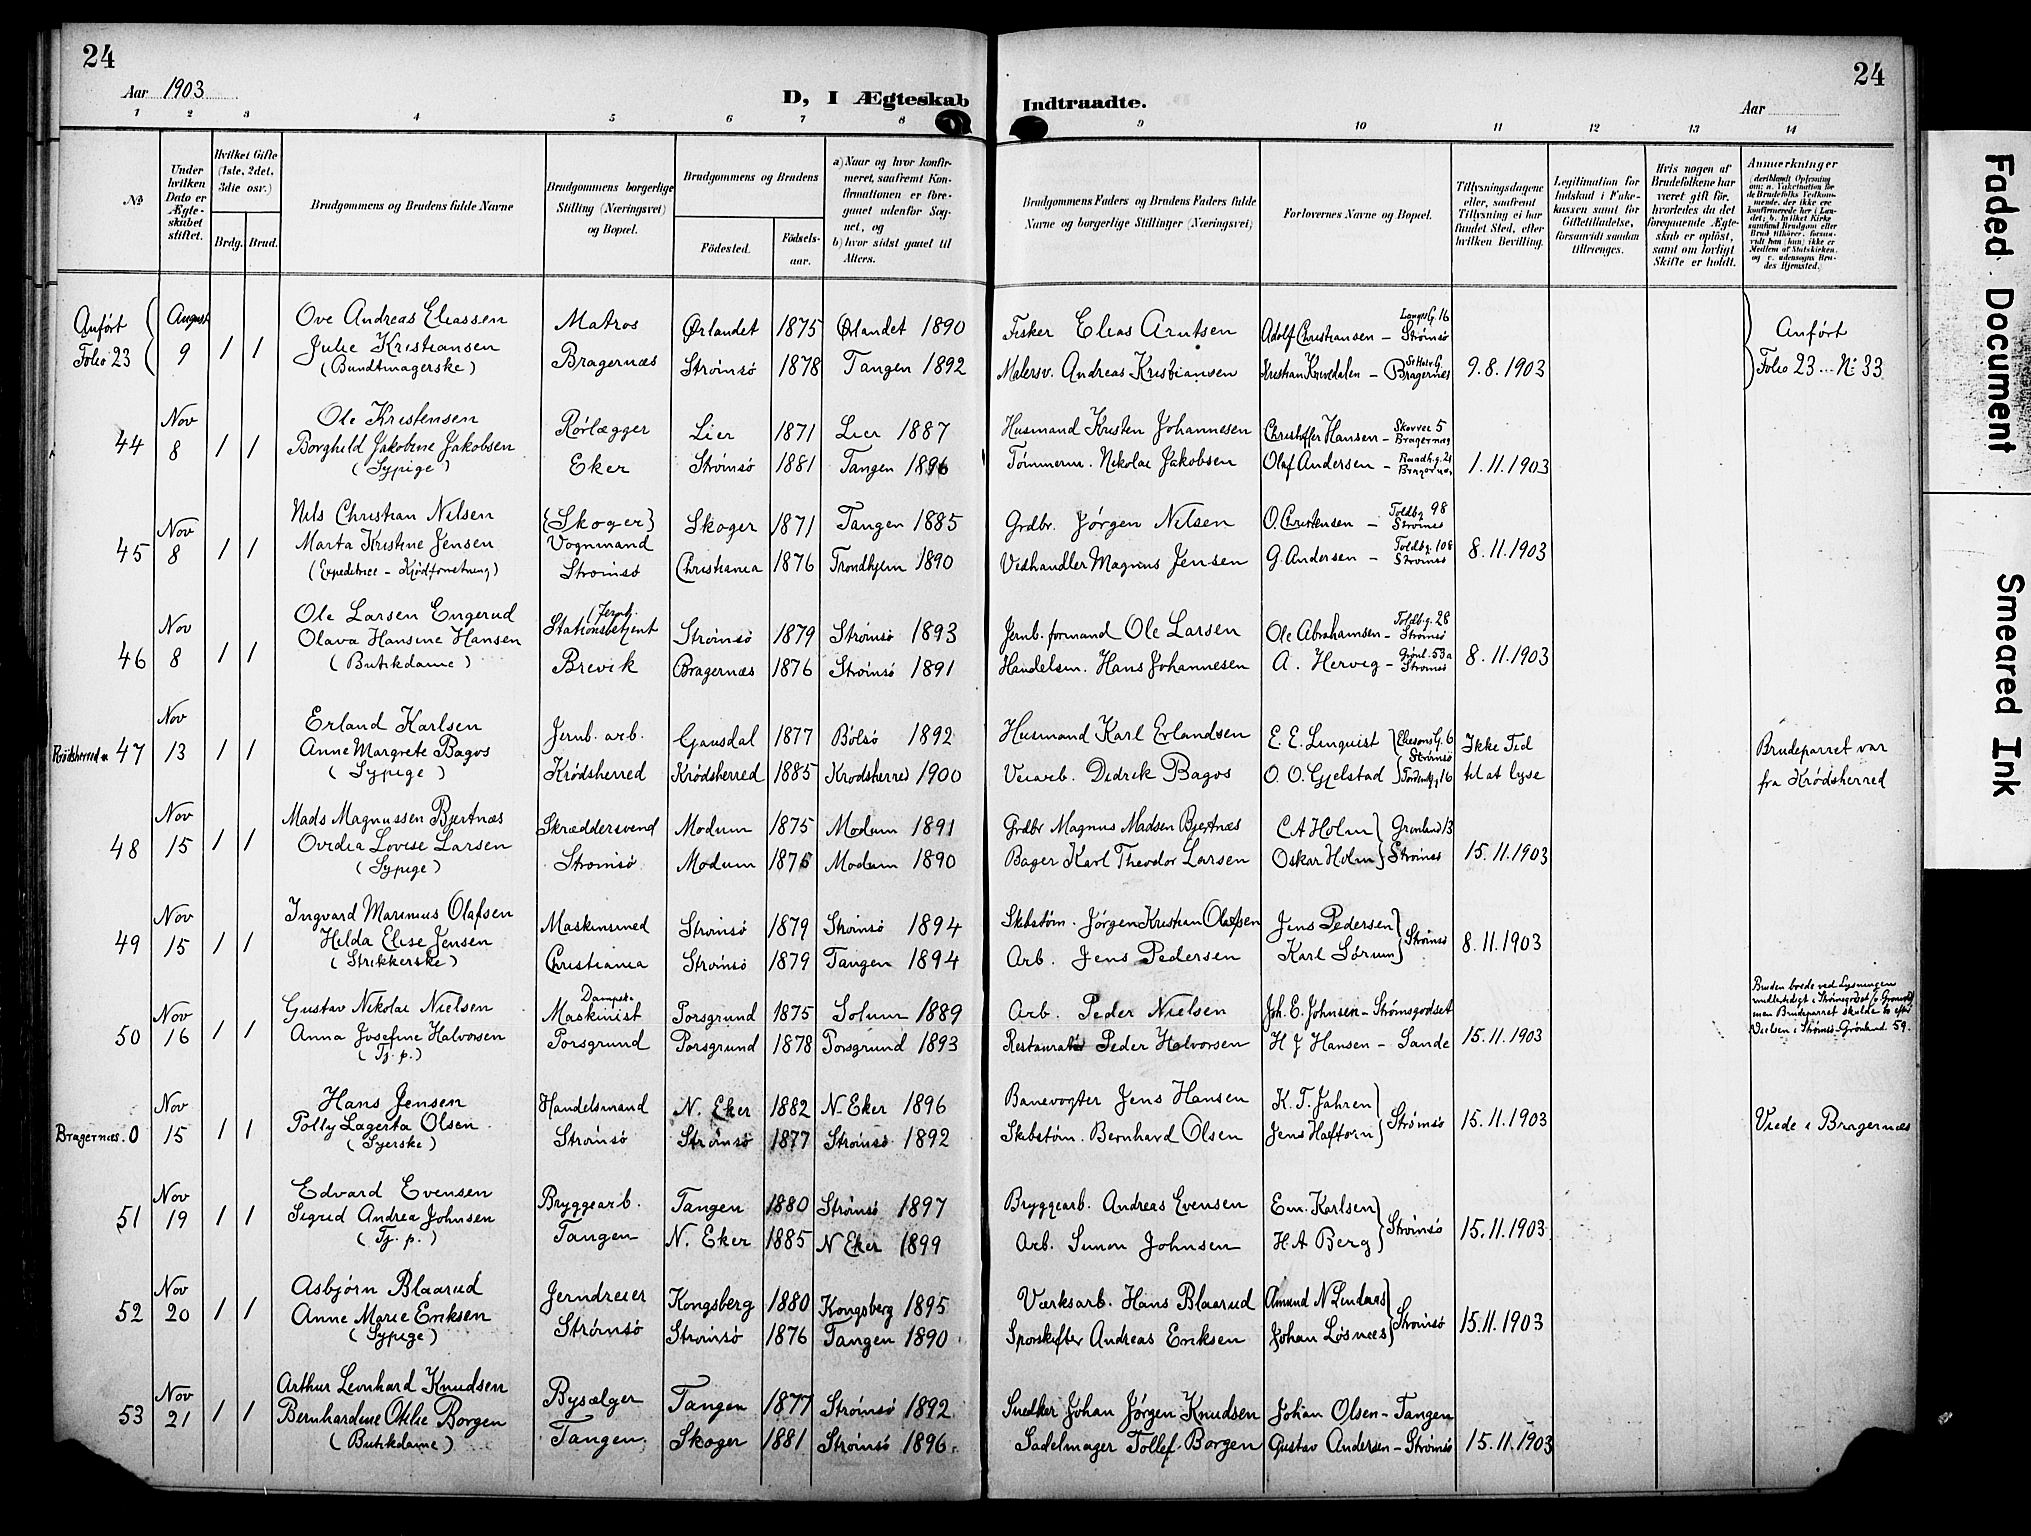 24
24
Aar 1903
D, I Ægteskab Indtraadte.
Aar
1 2 3 4 5 6 7 8 9 10 11 12 13 14
No
Under hvilken Dato er Ægteskabet stiftet.
Hvilket Gifte (1ste, 2det, 3die osv.)
Brdg. Brud.
Brudgommens og Brudens fulde Navne
Brudgommens borgerlige Stilling (Næringsvei) og Bopæl.
Brudgommens og Brudens
Födested. Födselsaar.
a) Naar og hvor konfirmeret, saafremt Konfirmationen er foregaaet udenfor Sognet, og
b) hvor sidst gaaet til Alters.
Brudgommens Faders og Brudens Faders fulde Navne og borgerlige Stillinger (Næringsvei)
Forlovernes Navne og Bopæl.
Tillysningsdagene eller, saafremt Tillysning ei har fundet Sted, efter hvilken Bevilling.
Legitimation for Indskud i Enkekassen samt for Giftetilladelse, forsaavidt saadan tiltrænges.
Hvis nogen af Brudefolkene har været gift før, hvorledes da det foregaaende Ægteskab er oplöst, samt om lovligt Skifte er holdt.
Anmærkninger
Anført Folio 23
August 9
1 1
Ove Andreas Eliassen
Julie Kristiansen
(Bundtmagerske)
Matros
Bragernæs
Ørlandet 1875 Ørlandet 1890
Strømsö 1878 Tangen 1892
Fisker Elias Arntsen
Malersv. Andreas Kristiansen
Adolf Christiansen - Langes G. 16 Strømsö
Kristian Knivedalen - Bragernes
9.8.1903
Anført Folio 23 No 33
44
Nov 8
1 1
Ole Kristensen
Borghild Jakobine Jakobsen
(Sypige)
Rörlægger
Eker
Lier 1871 Lier 1887
Strømsö 1881 Tangen 1896
Husmand Kristen Johannesen
Tömmerm. Nikolai Jakobsen
Christoffer Hansen - 5 Bragernæs
Olaf Andersen - Bragernæs
1.11.1903
45
Nov 8
1 1
Nils Christian Nilsen
Marta Kristine Jensen
(Expeditrice - Kjödforretning)
{Skoger}
Vognmand
Strömsö
Skoger 1871 Tangen 1885
Christiania 1876 Trondhjem 1890
Grdbr. Jörgen Nilsen
Vedhandler Magnus Jensen
O. Christensen - Toldbg. 98 Strömsö
G. Andersen - Toldbg. 108 Strömsö
8.11.1903
46
Nov 8
1 1
Ole Larsen Engerud
Olava Hansine Hansen
(Butikdame)
(Jernb.
Stationsbetjent
Brevik
Strømsö 1879 Strømsö 1893
Bragernæs 1876 Strømsö 1891
Jernb. formand Ole Larsen
Handelsm. Hans Johannesen
Ole Abrahamsen - Toldb.g. 28 Strømsö
A. Hervig - Grönl. 53a Strømsö
8.11.1903
47
Nov 13
1 1
Erland Karlsen
Anne Margrete Bagos
(Sypige)
Jernb. arb.
Krödsherred
Gausdal 1877 Bolsö 1892
Krödsherred 1885 Krödsherred 1900
Husmand Karl Erlandsen
Veiarb. Didrik Bagos
E. E. Linquist
O. O. Gjelstad
Strömsö
Ikke Tid til at lyse
Brudeparret var fra Krødsherred
48
Nov 15
1 1
Mads Magnussen Bjertnæs
Ovidia Lovise Larsen
(Sypige)
Skræddersvend
Strömsö
Modum 1875 Modum 1891
Modum 1876 Modum 1890
Grdbr Magnus Madsen Bjertnæs
Bager Karl Theodor Larsen
C A Holm
Oskar Holm
Grönland 13 Strömsö
15.11.1903
49
Nov 15
1 1
Ingvard Marinius Olafsen
Hilda Elise Jensen
(Strikkerske)
Maskinsmed
Christiania
Strömsö 1879 Strömsö 1894
Strömsö 1879 Tangen 1894
Skibstöm. Jörgen Kristian Olafsen
Arb. Jens Pedersen
Jens Pedersen
Karl Sörum
Strömsö
8.11.1903
50
Nov 16
1 1
Gustav Nikolai Nielsen
Anna Josefine Halvorsen
(Tj. p.)
Dampsk.
Maskinist
Porsgrund
Porsgrund 1875 Solum 1889
Porsgrund 1878 Porsgrund 1893
Arb. Peder Nielsen
Restauratör Peder Halvorsen
Joh. E. Johnsen - Strömsgodset
H J Hansen - Sande
15.11.1903
Bruden boede ved Lysningen midlertidigt i Strømsgodset
men Brudeparret skulde bo efter Vielsen i Strømsö - Grønland 59.
Bragernæs. 0
Nov 15
1 1
Hans Jensen
Polly Lagerta Olsen
(Syerske)
Handelsmand
Strømsö
N. Eker 1882 N. Eker 1896
Strømsö 1877 Strømsö 1892
Banevogter Jens Hansen
Skibstöm. Bernhard Olsen
K. T. Jahren
Jens Haftorn
Strømsö
15.11.1903
Viede i Bragernæs
51
Nov 19
1 1
Edvard Evensen
Sigrid Andrea Johnsen
(Tj. p.)
Bryggearb.
Tangen
Tangen 1880 Strømsö 1897
N. Eker 1885 N Eker 1899
Bryggearb. Andreas Evensen
Arb. Simon Johnsen
Em. Karlsen
H. A Berg
Strømsö
15.11.1903
52
Nov 20
1 1
Asbjørn Blaarud
Anne Marie Eriksen
(Sypige)
Jerndreier
Strømsö
Kongsberg 1880 Kongsberg 1895
Strömsö 1876 Tangen 1890
Værksarb. Hans Blaarud
Sporskifter Andreas Eriksen
Amund N Lindaas
Johan Lösnæs
Strømsö
15.11.1903
53
Nov 21
1 1
Arthur Leonhard Knudsen
Bernhardine Otilie Borgen
(Butikdame)
Bysælger
Tangen
Tangen 1877 Strømsö 1892
Skoger 1881 Strømsö 1896
Snedker Johan Jörgen Knudsen
Sadelmager Tollef Borgen
Johan Olsen - Tangen
Gustav Andersen - Strømsö
15.11.1903
Faded Document
Smeared Ink